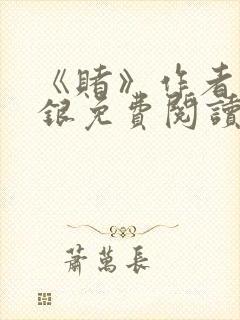 《賭》作者
銀免費閱讀
蕭萬長